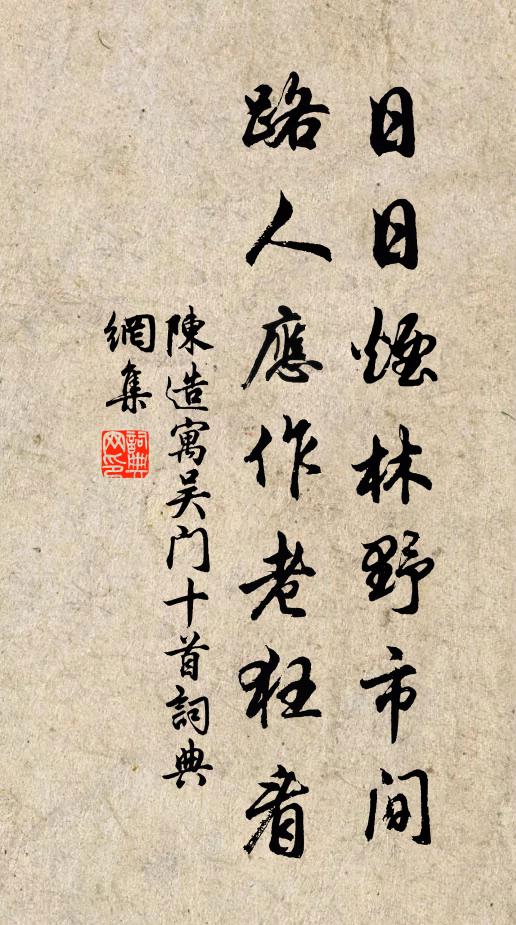 日日煙林野市间
路人應作老狂看
陳造寓吴门十首詞典
網集
詞典
网印